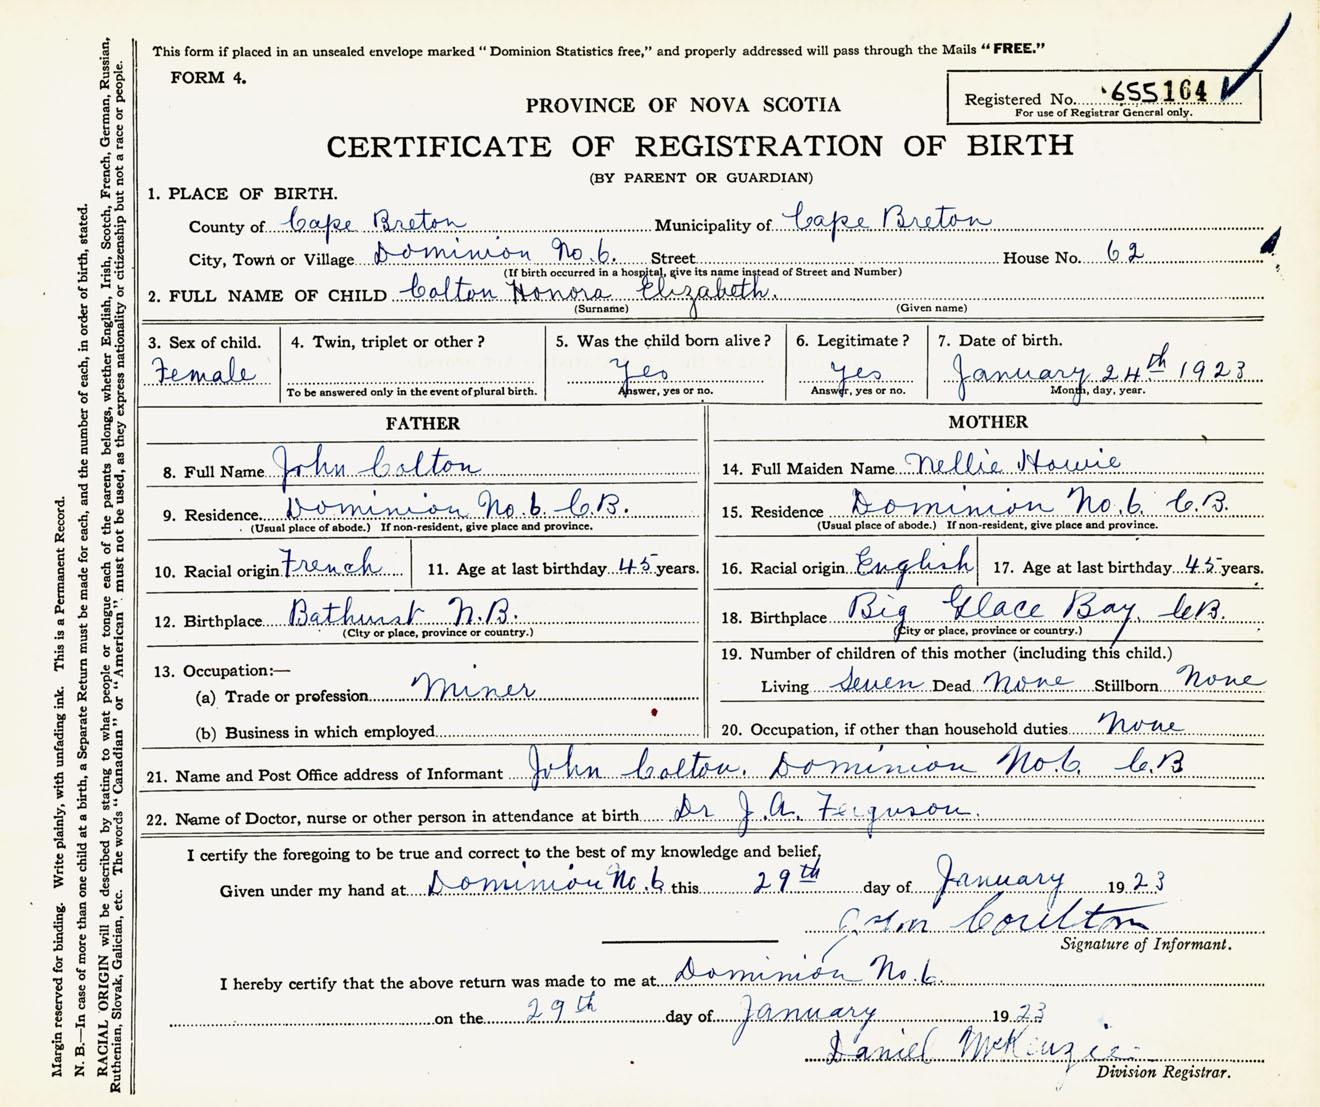 This form if placed in an unsealed envelope marked "Dominion Statistics free," and properly addressed will pass through the Mails "FREE."
FORM 4.
Registered No. 655164
For use of Registrar General only.
PROVINCE OF NOVA SCOTIA
CERTIFICATE OF REGISTRATION OF BIRTH
(BY PARENT OR GUARDIAN)
1. PLACE OF BIRTH.
County of Cape Breton Municipality of Cape Breton
City, Town or Village Dominion No. 6. Street House No. 62
(If birth occurred in a hospital, give its name instead of Street and Number)
2. FULL NAME OF CHILD Colton Honora Elizabeth.
(Surname) (Given name)
3. Sex of child. 4. Twin, triplet or other? 5. Was the child born alive? 6. Legitimate? 7. Date of birth.
Female Yes Yes January 24th 1923
To be answered only in the event of plural birth. Answer, yes or no. Answer, yes or no. Month, day, year.
FATHER MOTHER
8. Full Name John Colton 14. Full Maiden Name Nellie Howie
9. Residence Dominion No. 6. C.B. 15. Residence Dominion No. 6 C.B.
(Usual place of abode.) If non-resident, give place and province. (Usual place of abode.) If non-resident, give place and province.
10. Racial origin French 11. Age at last birthday 45 years. 16. Racial origin English 17. Age at last birthday 45 years.
12. Birthplace Bathurst N.B. 18. Birthplace Big Glace Bay, C.B.
(City or place, province or country.) (City or place, province or country.)
13. Occupation:— 19. Number of children of this mother (including this child.)
(a) Trade or profession Miner Living Seven Dead None Stillborn None
(b) Business in which employed 20. Occupation, if other than household duties None
21. Name and Post Office address of Informant John Colton. Dominion No. 6. C.B
22. Name of Doctor, nurse or other person in attendance at birth Dr J.A. Ferguson.
I certify the foregoing to be true and correct to the best of my knowledge and belief,
Given under my hand at Dominion No. 6 this 29th day of January 1923
John Coulton
Signature of Informant.
I hereby certify that the above return was made to me at Dominion No. 6.
on the 29th day of January 1923
Daniel McKenzie
Division Registrar.
Margin reserved for binding. Write plainly, with unfading ink. This is a Permanent Record.
N. B.—In case of more than one child at a birth, a Separate Return must be made for each, and the number of each, in order of birth, stated.
RACIAL ORIGIN will be described by stating to what people or tongue each of the parents belongs, whether English, Irish, Scotch, French, German, Russian,
Ruthenian, Slovak, Galician, etc. The words "Canadian" or "American" must not be used, as they express nationality or citizenship but not a race or people.